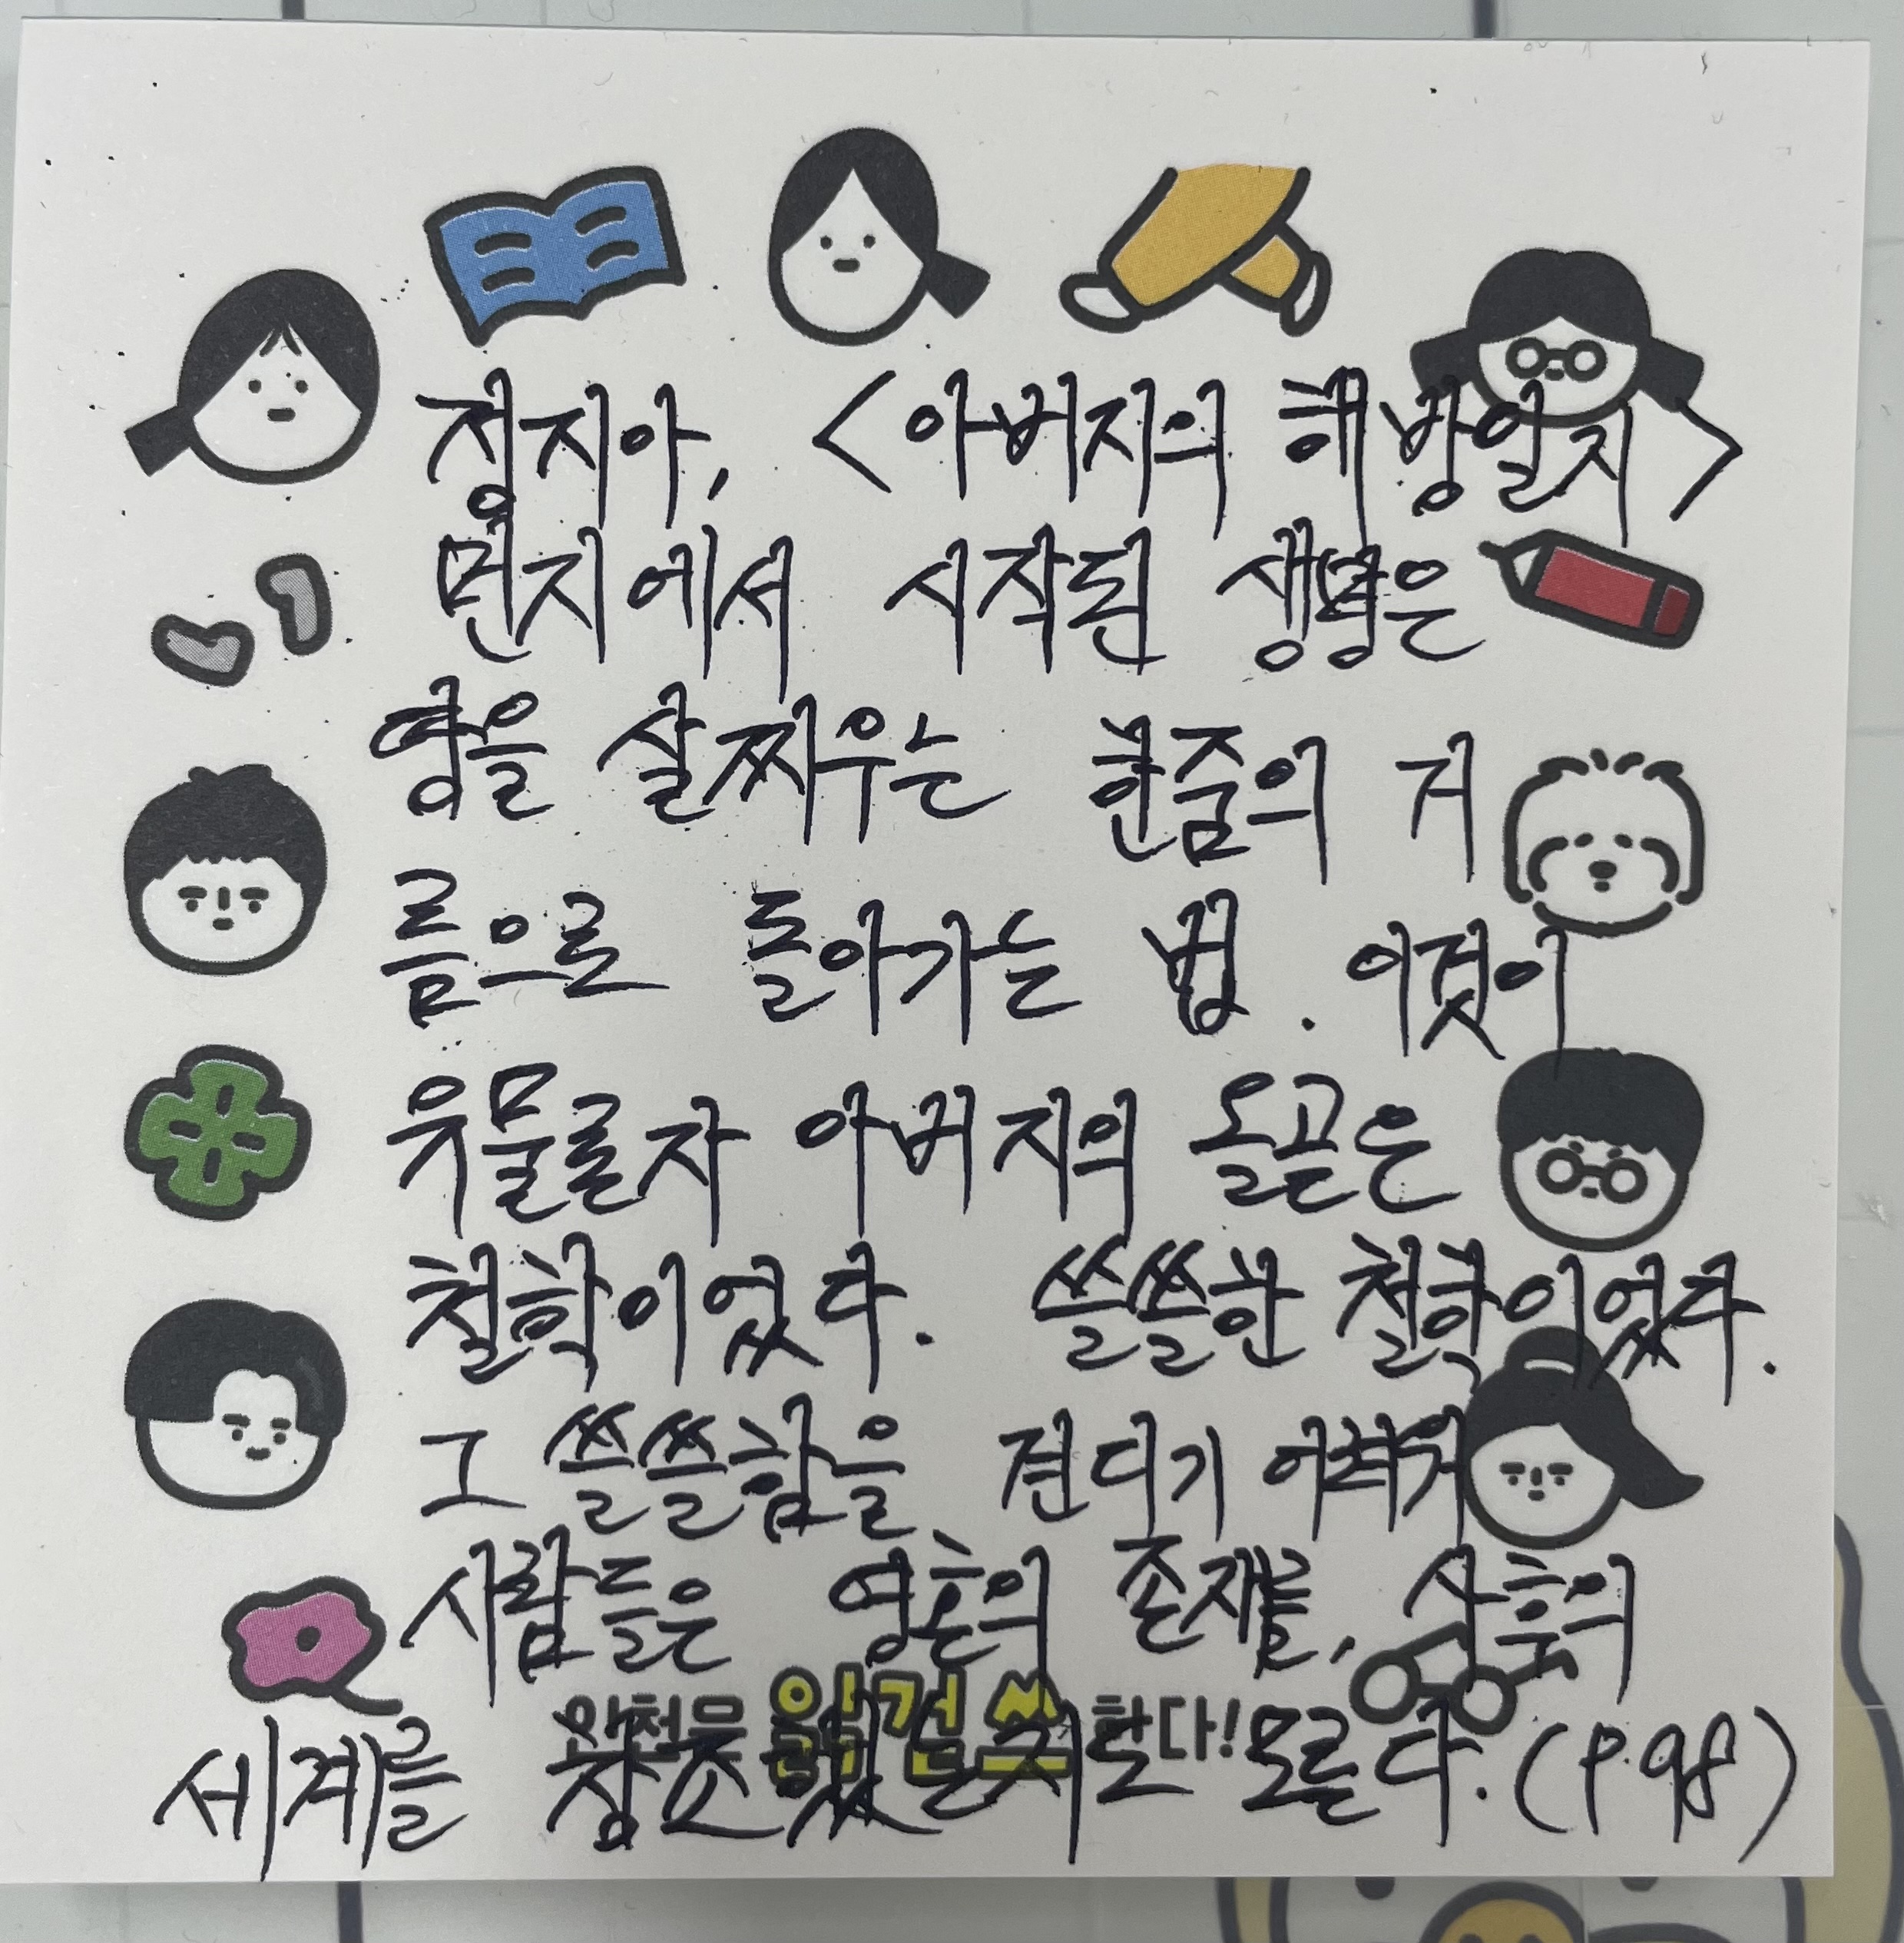 정지아, <아버지의 해방일지>
먼지에서 시작된 생명은
땅을 살찌우는 한줌의 거
름으로 돌아가는 법. 이것이
유물론자 아버지의 올곧은
철학이었다. 쓸쓸한 철학이었다.
그 쓸쓸함을 견디기 어려워
사람들은 영혼의 존재를, 사후의
읽걷쓰 하다!
세계를 창조했는지도 모른다. (P.98)